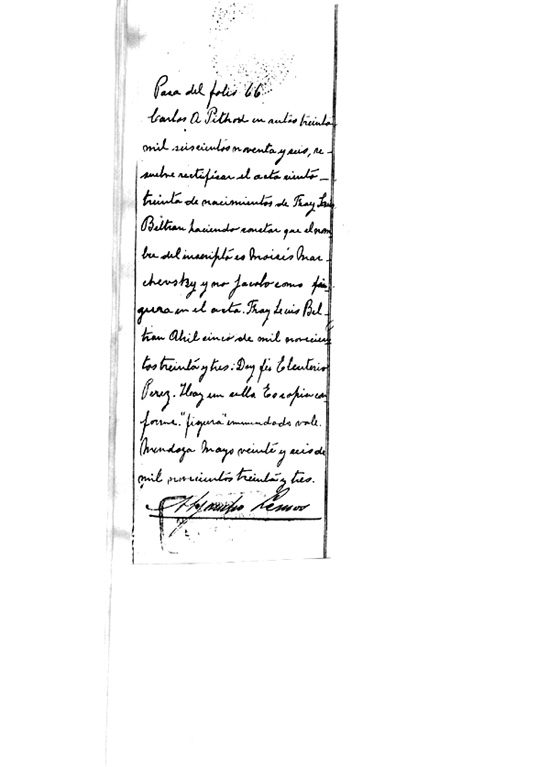 Pasa del folio 66
Carlos A Pithod en autos treinta
mil seiscientos noventa y seis, re-
suelve rectificar el acta ciento
treinta de nacimientos de Fray Luis
Beltran haciendo constar que el nom
bre del inscripto es Moisés Mar-
chevsky y no Jacobo como fi-
gura en el acta. Fray Luis Bel-
tran Abril cinco de mil novecien
tos treinta y tres: Doy fe Eleuterio
Perez. Hay un sello Es copia con
forme. "figura" enmendado vale.
Mendoza Mayo veinte y seis de
mil novecientos treinta y tres.
Lemos